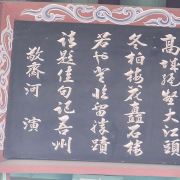 高城絶壑大江頭
冬柏梅花矗石樓
若也登臨留勝蹟
請題佳句記吾州
敬齋河 演